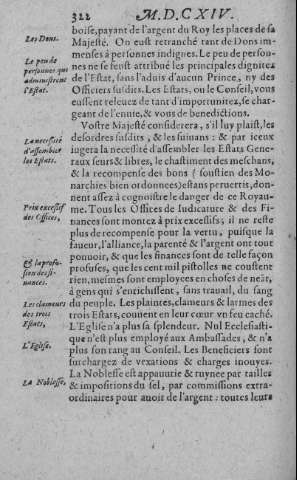 322 M.D.CXIV.
boise, payant de l'argent du Roy les places de sa
Les Dons.
Majesté. On eust retranché tant de Dons im-
menses à personnes indignes. Le peu de person-
Le peu de
personnes qui
administrent
l'Estat.
nes qui se sont attribué les principales dignitez
de l'Estat, sans l'aduis d'aucun Prince, ny des
Officiers susdits. Les Estats, ou le Conseil, vous
eussent releuez de tant d'importunitez, se char-
geant de l'enuie, & vous de benedictions.
Vostre Majesté considerera, s'il luy plaist, les
desordres susdits, & les suiuans : & par iceux
La necessité
d'assembler
les Estats.
iugera la necessité d'assembler les Estats Gene-
raux seurs & libres, le chastiment des meschans,
& la recompense des bons (soustien des Mo-
narchies bien ordonnees) estans peruertis, don-
nent assez à cognoistre le danger de ce Royau-
Prix excessif
des Offices,
me. Tous les Offices de Iudicature & des Fi-
nances sont montez à prix excessifs; il ne reste
plus de recompense pour la vertu, puisque la
faueur, l'alliance, la parenté & l'argent ont tout
pouuoir, & que les finances sont de telle façon
Et la profu-
sion des fi-
nances.
profuses, que les cent mil pistolles ne coustent
rien, mesmes sont employees en choses de neãt,
à gens qui s'enrichissent, sans trauail, du sang
Les clameurs
des trois
Estats,
du peuple. Les plaintes, clameurs & larmes des
trois Estats, couuent en leur cœur vn feu caché.
L'Eglise n'a plus sa splendeur. Nul Ecclesiasti-
L'Eglise.
que n'est plus employé aux Ambassades, & n'a
plus son rang au Conseil. Les Beneficiers sont
surchargez de vexations & charges inouyes.
La Noblesse.
La Noblesse est appauurie & ruynee par tailles
& impositions du sel, par commissions extra-
ordinaires pour auoir de l'argent : toutes leurs